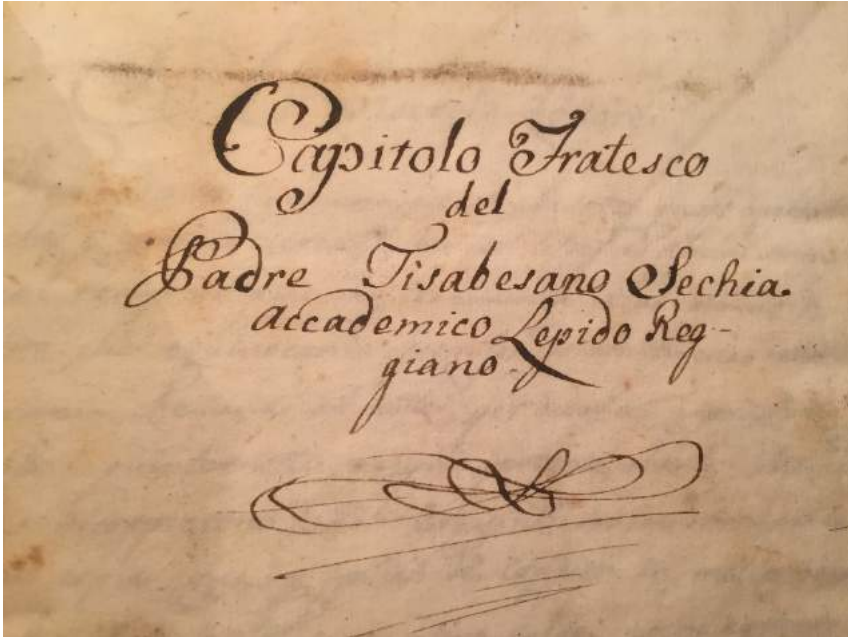 Capitolo Fratesco
del
Padre Tisabesano Sechia.
accademico Lepido Reg-
giano.